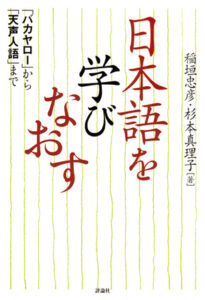 日本語を
学び
なおす
「バカヤロー」から
「天声人語」まで
稲垣忠彦・杉本真理子[著]
評論社